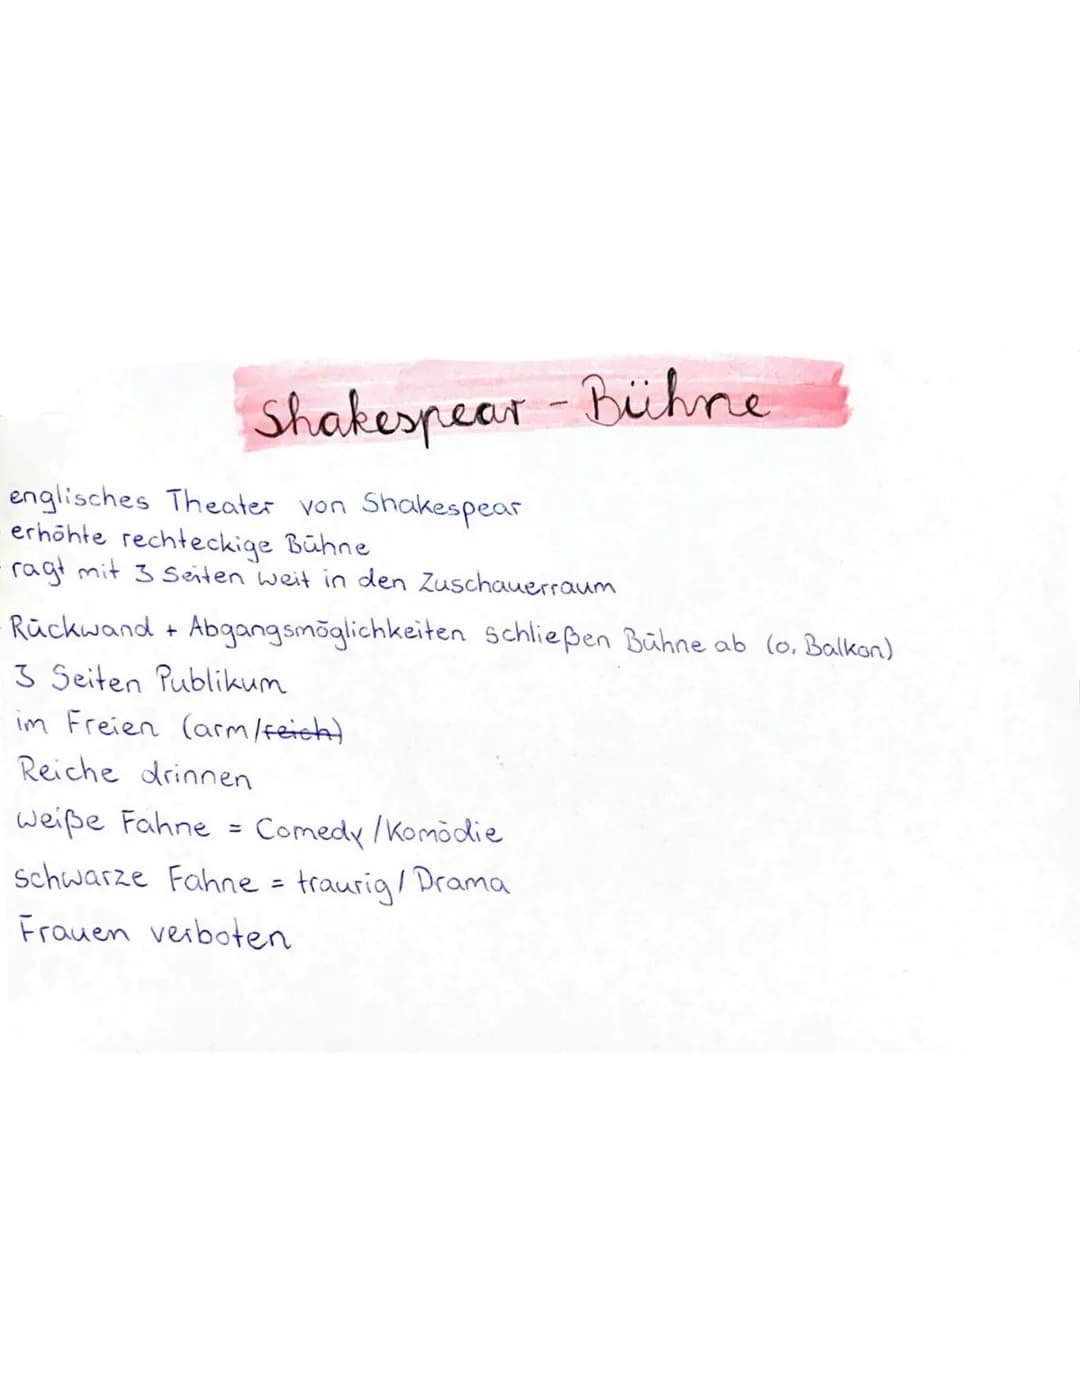 Shakespear - Bühne
englisches Theater von Shakespear
erhöhte rechteckige Bühne
ragt mit 3 Seiten weit in den Zuschauerraum
Rückwand + Abgangsmöglichkeiten schließen Bühne ab (o. Balkon)
3 Seiten Publikum
im Freien (arm/reich)
Reiche drinnen
weiße Fahne = Comedy/Komödie
schwarze Fahne = traurig/Drama
Frauen verboten